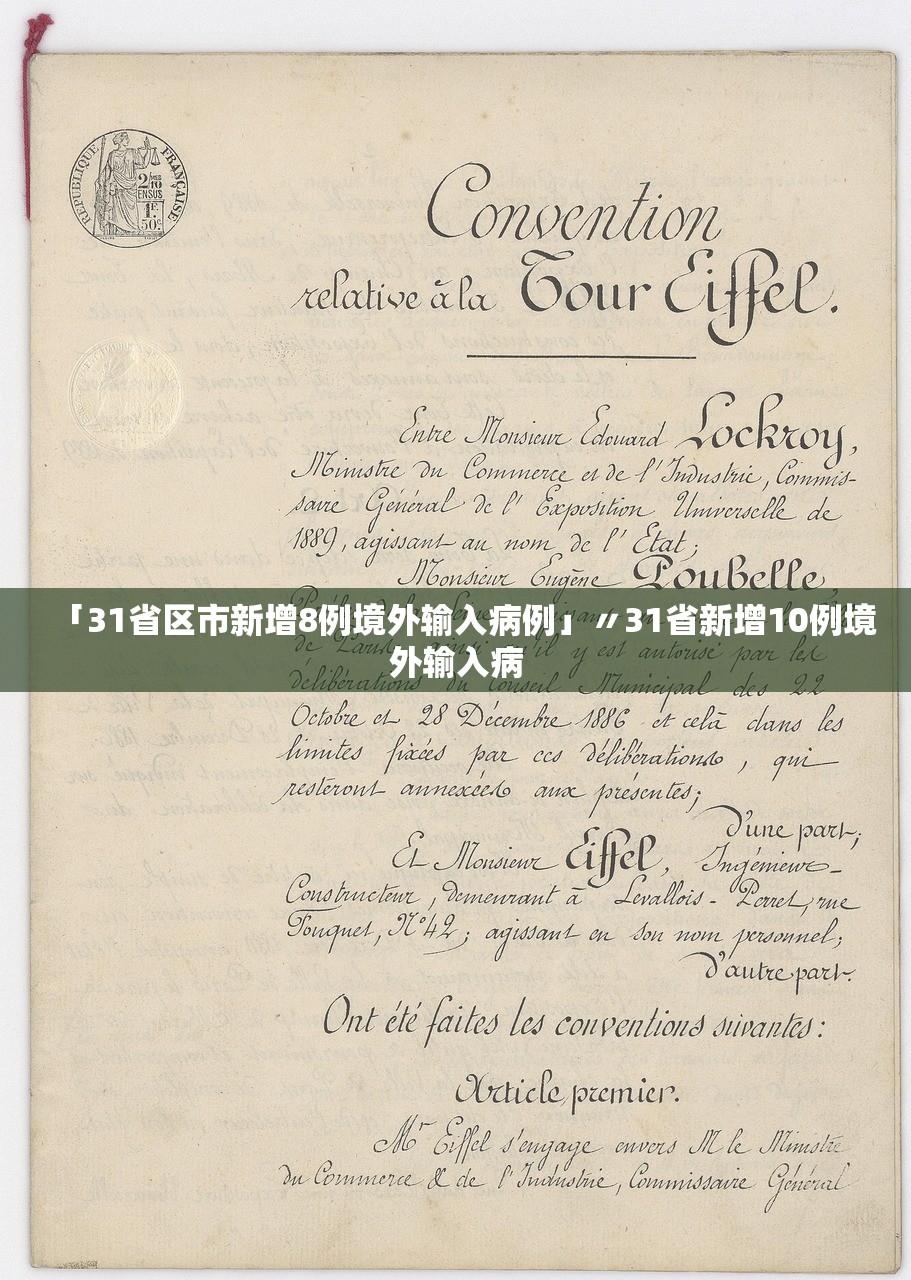 RÉPUBLIQUE FRANÇAISE
2/10
EN SUS
1F.
50c
Convention
relative à la Tour Eiffel.
Entre Monsieur Edouard Lockroy,
Ministre du Commerce et de l'Industrie, Commis-
saire Général de l'Exposition Universelle de
1889, agissant au nom de l'Etat;
Monsieur Eugène Poubelle
「31省区市新增8例境外输入病例」〃31省新增10例境
外输入病
de Paris y est autorisé par les
délibérations du Conseil Municipal des 22
Octobre et 28 Décembre 1886 et celà dans les
limites fixées par ces délibérations, qui
resteront annexées aux présentes;
d'une part;
Et Monsieur Eiffel, Ingénieur-
Constructeur, demeurant à Levallois-Perret, rue
Fouquet, N°42; agissant en son nom personnel;
d'autre part.
Ont été faites les conventions suivantes:
Article premier.
Mr Eiffel s'engage envers M le Ministre
du Commerce & de l'Industrie, Commissaire Général